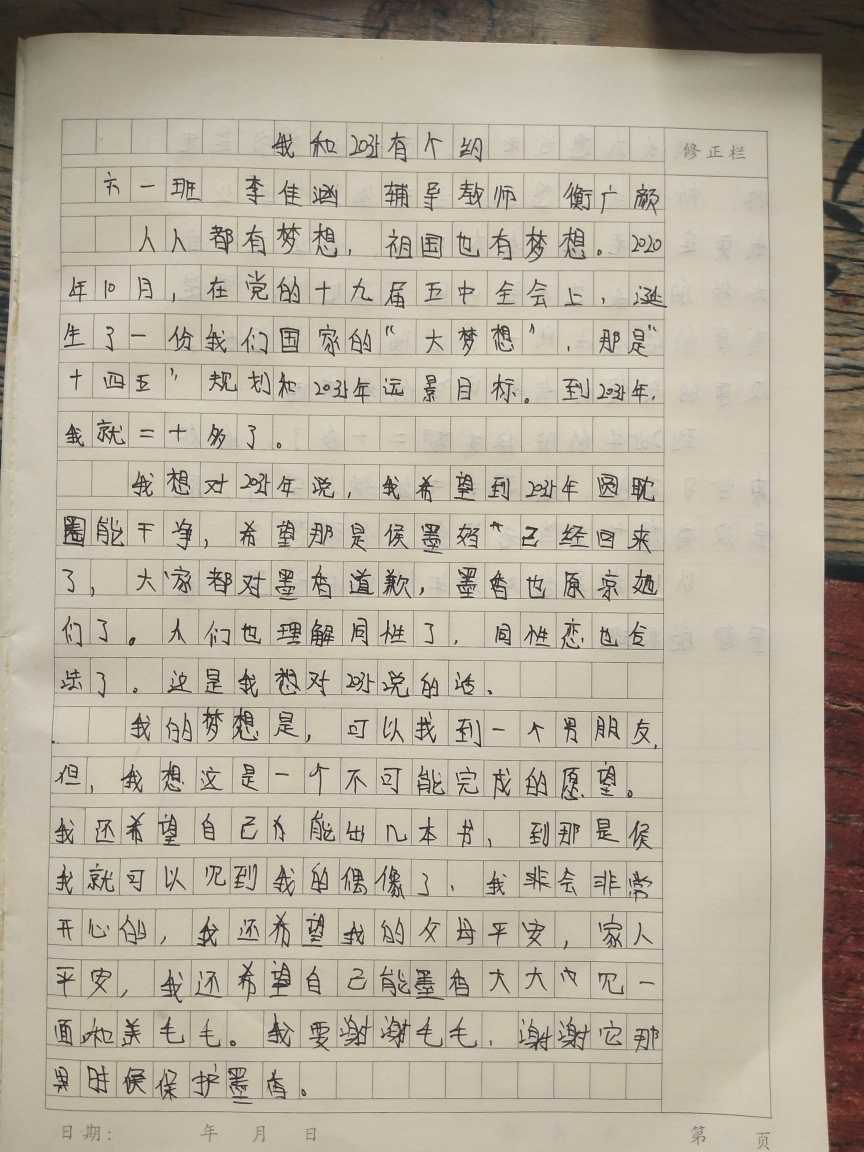 我和2035有个约
修正栏
六一班 李佳涵 辅导教师 衡广颜
人人都有梦想，祖国也有梦想。2020
年10月，在党的十九届五中全会上，诞
生了一份我们国家的“大梦想”，那是“
十四五”规划和2035年远景目标。到2035年，
我就二十多了。
我想对2035年说，我希望到2035年圆耽
圈能干净，希望那是候墨香已经回来
了，大家都对墨香道歉，墨香也原京她
们了。人们也理解同性了，同性恋也合
法了。这是我想对2035说的话、
我的梦想是，可以找到一个男朋友，
但，我想这是一个不可能完成的愿望。
我还希望自己能出几本书，到那是候
我就可以见到我的偶像了，我非会非常
开心的，我还希望我的父母平安，家人
平安，我还希望自己能墨香大大见一
面和美毛毛。我要谢谢毛毛，谢谢它那
时候保护墨香。
日期： 年 月 日
第 页